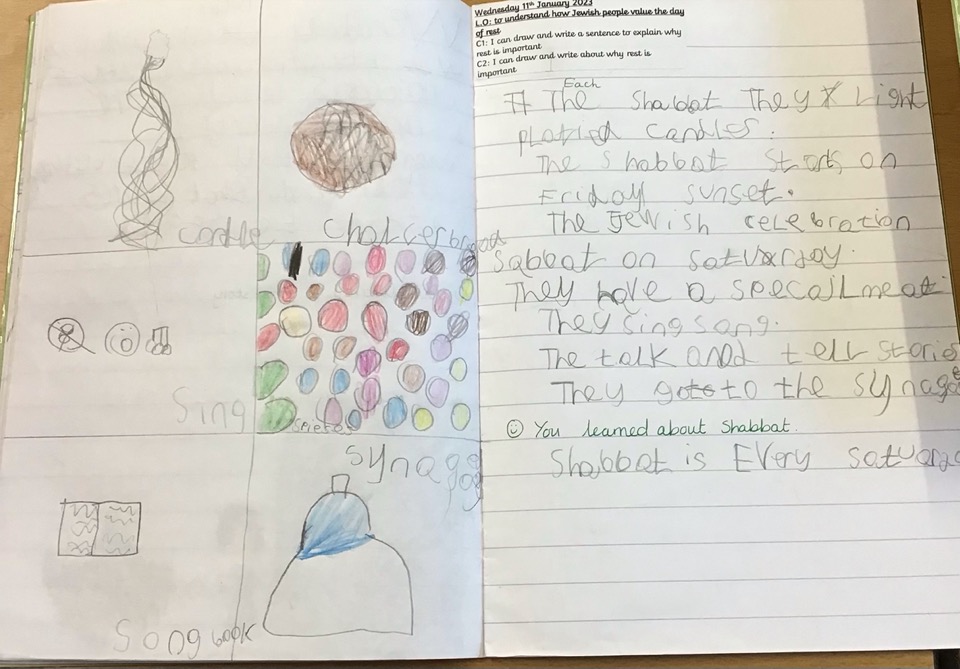 candle
chalcerbread
Sing
Spices
Synagogoge
Song book
Wednesday 11th January 2023
L.O: to understand how Jewish people value the day
of rest
C1: I can draw and write a sentence to explain why
rest is important
C2: I can draw and write about why rest is
important
Each
The Shabbat They Light
platied candles.
The Shabbat Starts on
Friday sunset.
The Jewish celebration
Sabbat on saturday.
They have a specail meal
They sing song.
The talk and tell stories
They go to the synago
☺ You learned about Shabbat.
Shabbat is Every saturda